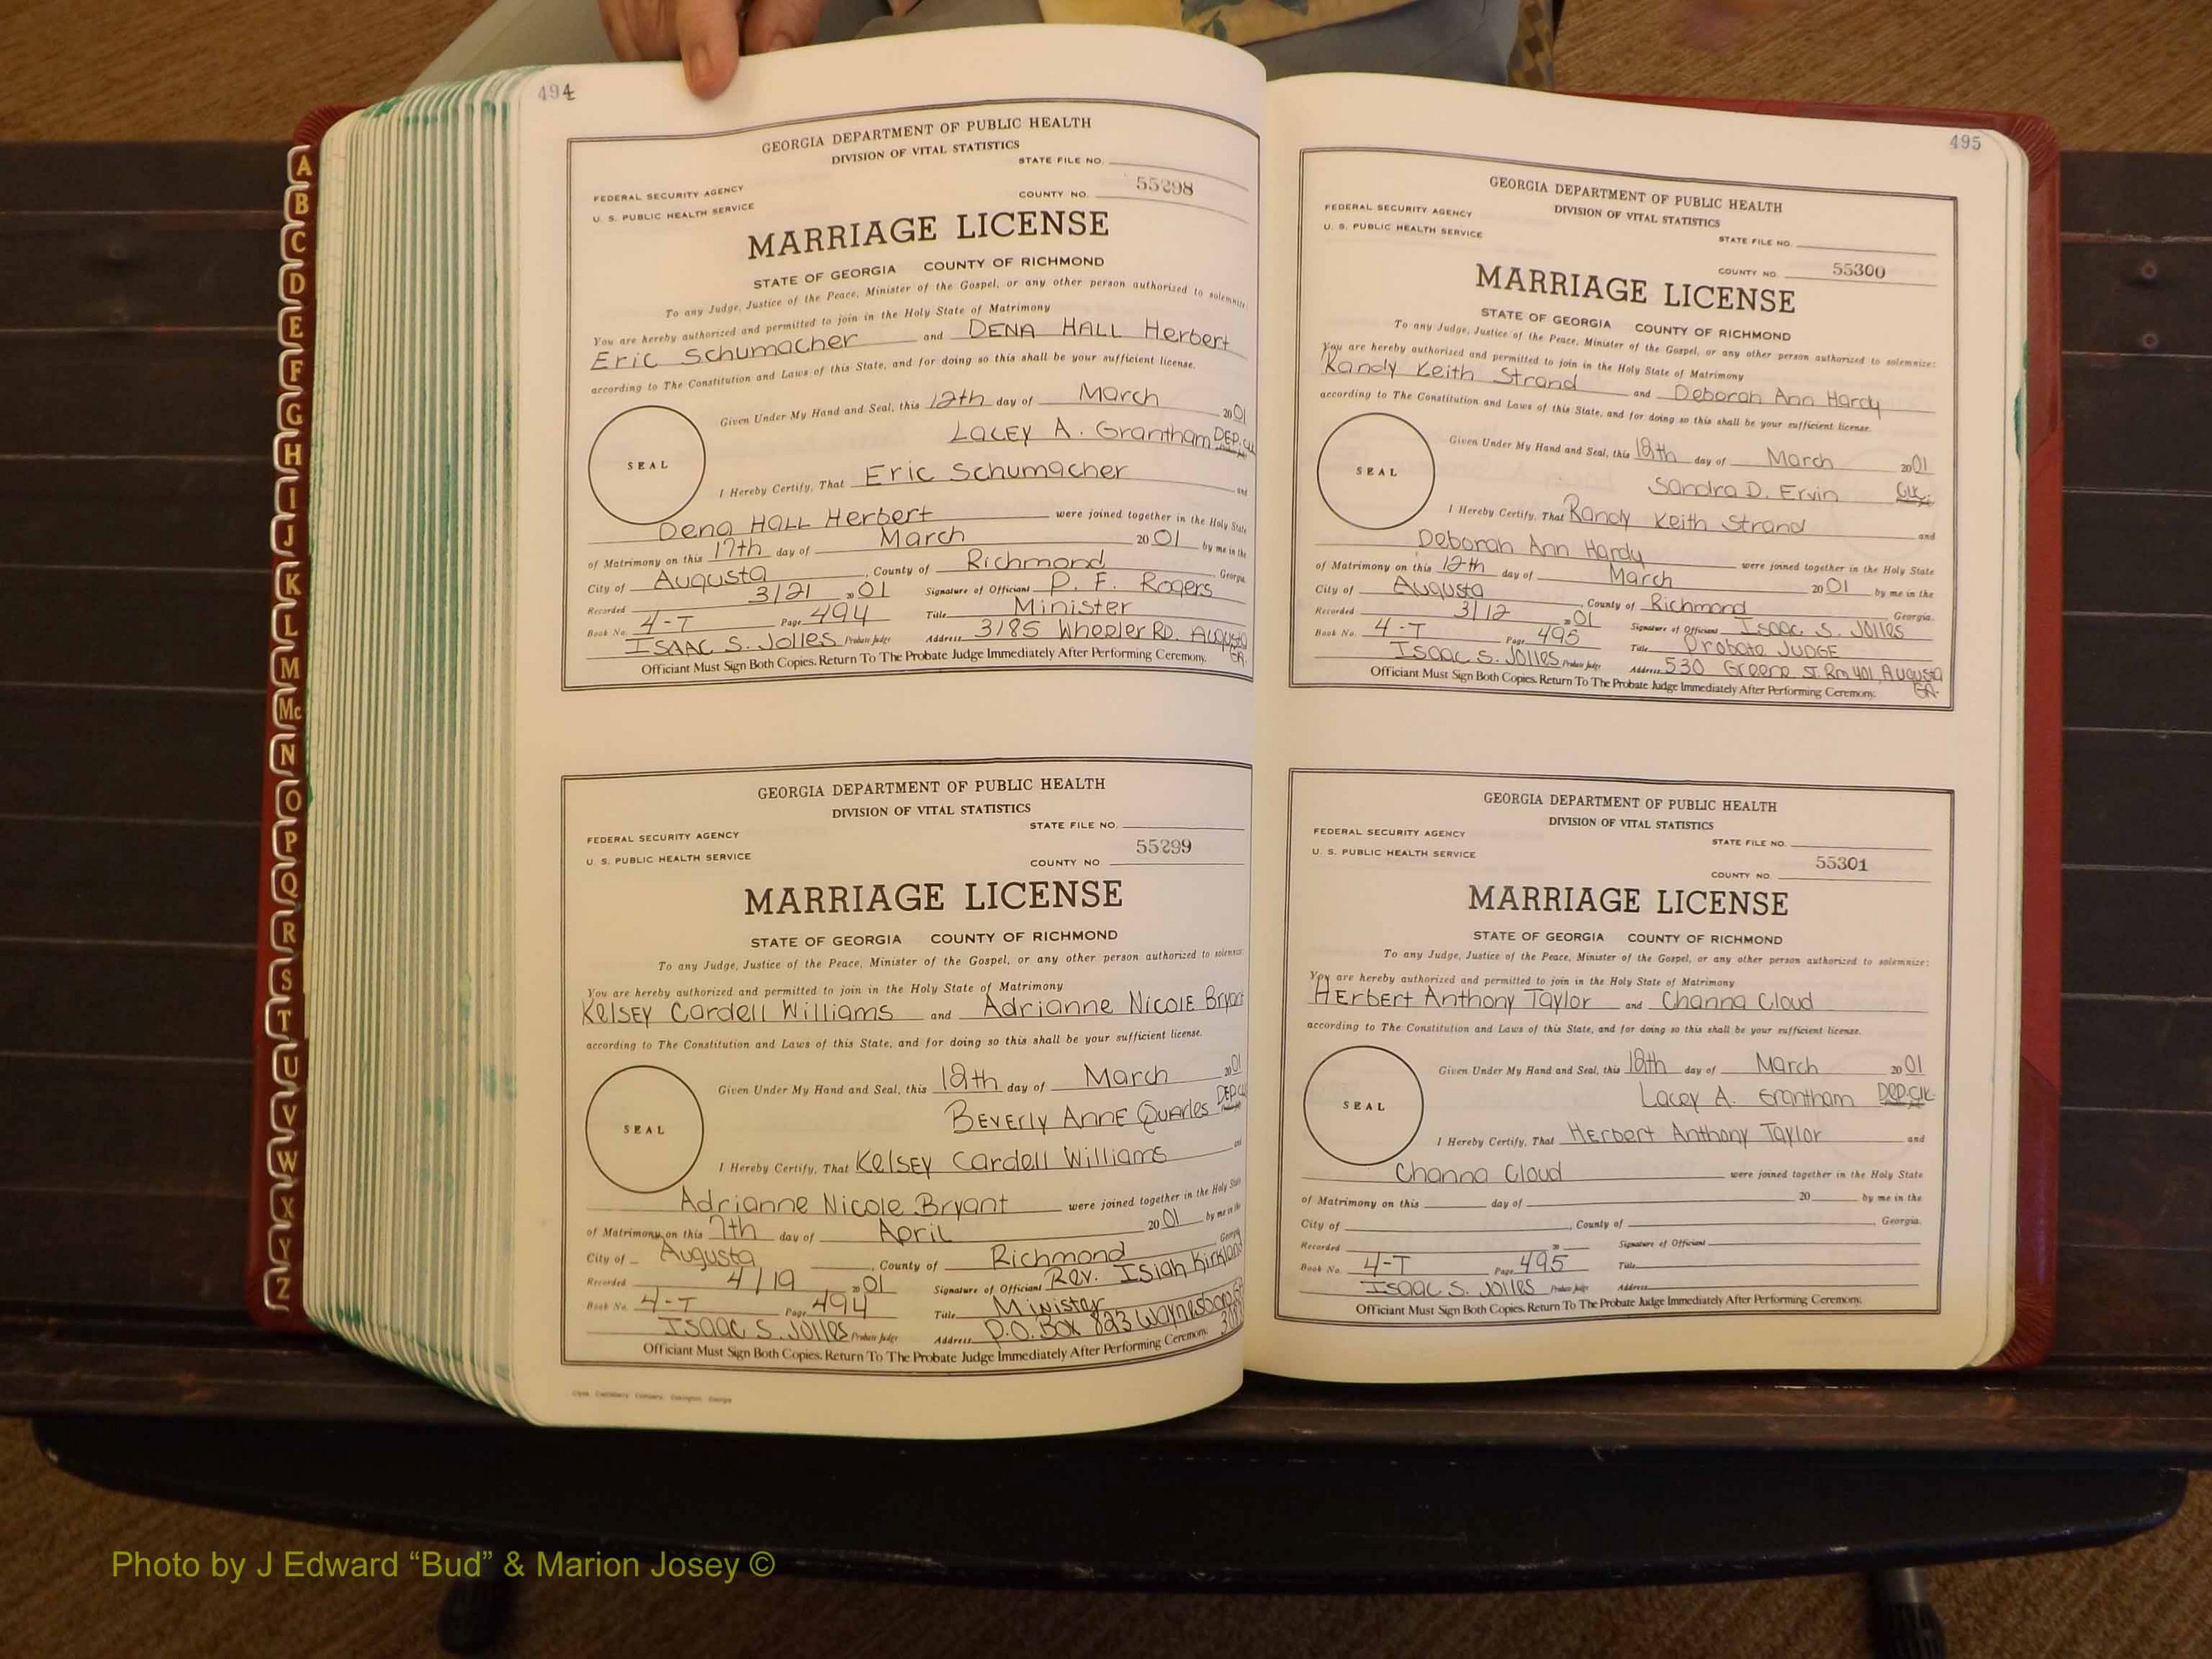 494
GEORGIA DEPARTMENT OF PUBLIC HEALTH
DIVISION OF VITAL STATISTICS
STATE FILE NO.
FEDERAL SECURITY AGENCY
U. S. PUBLIC HEALTH SERVICE
COUNTY NO. 55298
MARRIAGE LICENSE
STATE OF GEORGIA COUNTY OF RICHMOND
To any Judge, Justice of the Peace, Minister of the Gospel, or any other person authorized to solemnize:
You are hereby authorized and permitted to join in the Holy State of Matrimony
Eric Schumacher and DENA HALL Herbert
according to The Constitution and Laws of this State, and for doing so this shall be your sufficient license.
Given Under My Hand and Seal, this 12th day of March 2001
LACEY A. Grantham DEP. CLK
SEAL
I Hereby Certify, That Eric Schumacher and
Dena HALL Herbert were joined together in the Holy State
of Matrimony on this 17th day of March 2001 by me in the
City of Augusta, County of Richmond Georgia.
Recorded 3/21 2001 Signature of Officiant P. F. Rogers
Book No. 4-T Page 494 Title Minister
ISAAC S. JOLLES Probate Judge Address 3185 Wheeler RD. AUGUSTA GA.
Officiant Must Sign Both Copies. Return To The Probate Judge Immediately After Performing Ceremony.
GEORGIA DEPARTMENT OF PUBLIC HEALTH
DIVISION OF VITAL STATISTICS
STATE FILE NO.
FEDERAL SECURITY AGENCY
U. S. PUBLIC HEALTH SERVICE
COUNTY NO 55299
MARRIAGE LICENSE
STATE OF GEORGIA COUNTY OF RICHMOND
To any Judge, Justice of the Peace, Minister of the Gospel, or any other person authorized to solemnize:
You are hereby authorized and permitted to join in the Holy State of Matrimony
KelSEY Cardell Williams and Adrianne NicolE Bryant
according to The Constitution and Laws of this State, and for doing so this shall be your sufficient license.
Given Under My Hand and Seal, this 12th day of March 2001
BEVERly ANNE QuArles DEP. CLK
SEAL
I Hereby Certify, That KelSEY Cardell Williams and
Adrianne Nicole Bryant were joined together in the Holy State
of Matrimony on this 7th day of April 2001 by me in the
City of Augusta, County of Richmond Georgia
Recorded 4/19 2001 Signature of Officiant Rev. Isiah Kirkland
Book No. 4-T Page 494 Title Minister
ISAAC S. JOLLES Probate Judge Address P.O. BOX 823 Waynesboro
Officiant Must Sign Both Copies. Return To The Probate Judge Immediately After Performing Ceremony.
495
GEORGIA DEPARTMENT OF PUBLIC HEALTH
DIVISION OF VITAL STATISTICS
FEDERAL SECURITY AGENCY
U. S. PUBLIC HEALTH SERVICE
STATE FILE NO.
COUNTY NO. 55300
MARRIAGE LICENSE
STATE OF GEORGIA COUNTY OF RICHMOND
To any Judge, Justice of the Peace, Minister of the Gospel, or any other person authorized to solemnize:
You are hereby authorized and permitted to join in the Holy State of Matrimony
Randy Keith Strand and Deborah Ann Hardy
according to The Constitution and Laws of this State, and for doing so this shall be your sufficient license.
Given Under My Hand and Seal, this 12th day of March 2001
Sandra D. Ervin Clk.
SEAL
I Hereby Certify, That Randy Keith Strand and
Deborah Ann Hardy were joined together in the Holy State
of Matrimony on this 12th day of March 2001 by me in the
City of Augusta, County of Richmond Georgia.
Recorded 3/12 2001 Signature of Officiant Isaac S. Jolles
Book No. 4-T Page 495 Title Probate JUDGE
Isaac S. Jolles Probate Judge Address 530 Greene St. Rm 401, Augusta GA.
Officiant Must Sign Both Copies. Return To The Probate Judge Immediately After Performing Ceremony.
GEORGIA DEPARTMENT OF PUBLIC HEALTH
DIVISION OF VITAL STATISTICS
FEDERAL SECURITY AGENCY
U. S. PUBLIC HEALTH SERVICE
STATE FILE NO.
COUNTY NO. 55301
MARRIAGE LICENSE
STATE OF GEORGIA COUNTY OF RICHMOND
To any Judge, Justice of the Peace, Minister of the Gospel, or any other person authorized to solemnize:
You are hereby authorized and permitted to join in the Holy State of Matrimony
HErbErt Anthony Taylor and Channa Cloud
according to The Constitution and Laws of this State, and for doing so this shall be your sufficient license.
Given Under My Hand and Seal, this 12th day of March 2001
Lacey A. Grantham DEP. Clk.
SEAL
I Hereby Certify, That HErbert Anthony Taylor and
Channa Cloud were joined together in the Holy State
of Matrimony on this day of 20 by me in the
City of , County of Georgia.
Recorded 20 Signature of Officiant
Book No. 4-T Page 495 Title
ISAAC S. JOLLES Probate Judge Address
Officiant Must Sign Both Copies. Return To The Probate Judge Immediately After Performing Ceremony.
A
B
C
D
E
F
G
H
I
J
K
L
M
Mc
N
O
P
Q
R
S
T
U
V
W
X
Y
Z
Photo by J Edward “Bud” & Marion Josey ©